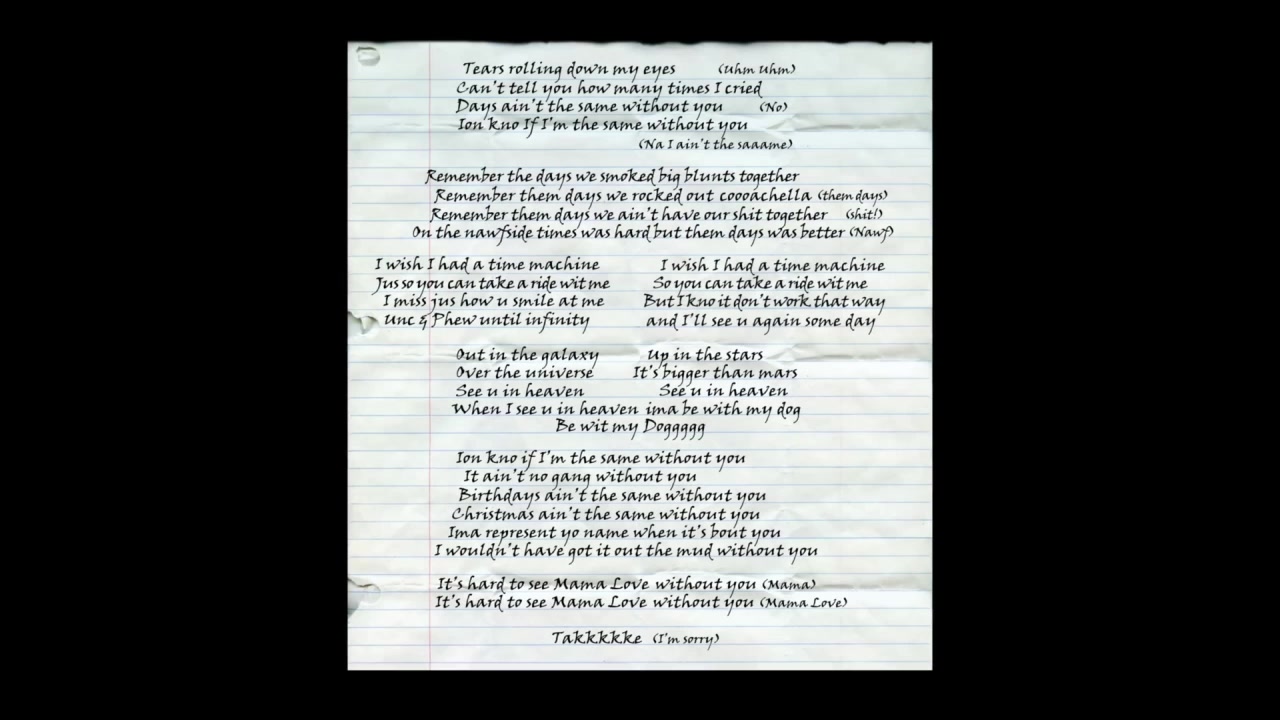 Tears rolling down my eyes (Uhm Uhm)
Can't tell you how many times I cried
Days ain't the same without you (No)
Ion kno If I'm the same without you
(Na I ain't the saaame)
Remember the days we smoked big blunts together
Remember them days we rocked out coooachella (them days)
Remember them days we ain't have our shit together (shit!)
On the nawfside times was hard but them days was better (Nawf)
I wish I had a time machine
Jus so you can take a ride wit me
I miss jus how u smile at me
Unc & Phew until infinity
I wish I had a time machine
So you can take a ride wit me
But I kno it don't work that way
and I'll see u again some day
Out in the galaxy
Over the universe
See u in heaven
Up in the stars
It's bigger than mars
See u in heaven
When I see u in heaven ima be with my dog
Be wit my Doggggg
Ion kno if I'm the same without you
It ain't no gang without you
Birthdays ain't the same without you
Christmas ain't the same without you
Ima represent yo name when it's bout you
I wouldn't have got it out the mud without you
It's hard to see Mama Love without you (Mama)
It's hard to see Mama Love without you (Mama Love)
Takkkkkke (I'm sorry)